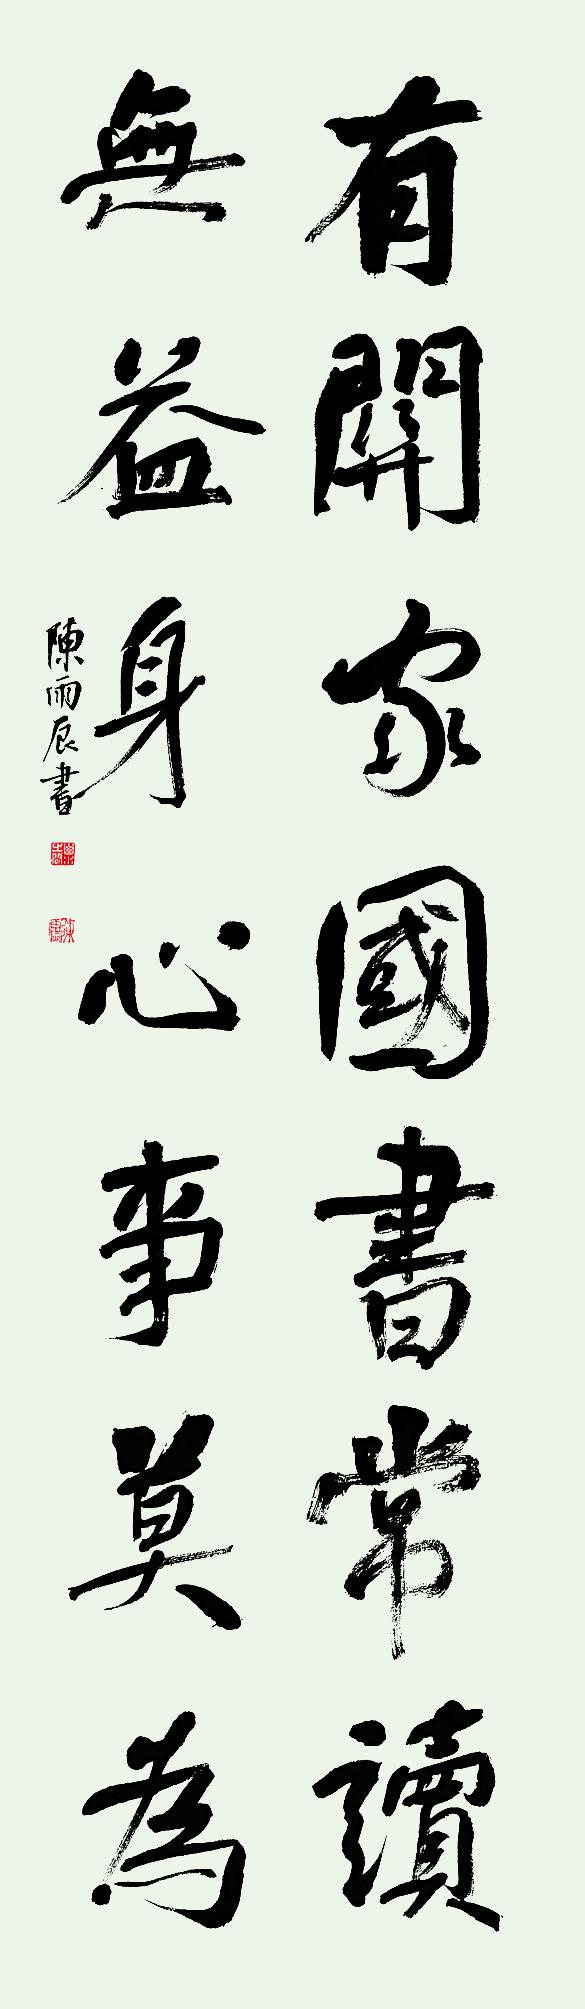 有開家國書常讀
無益身心事莫為
陳雨辰書